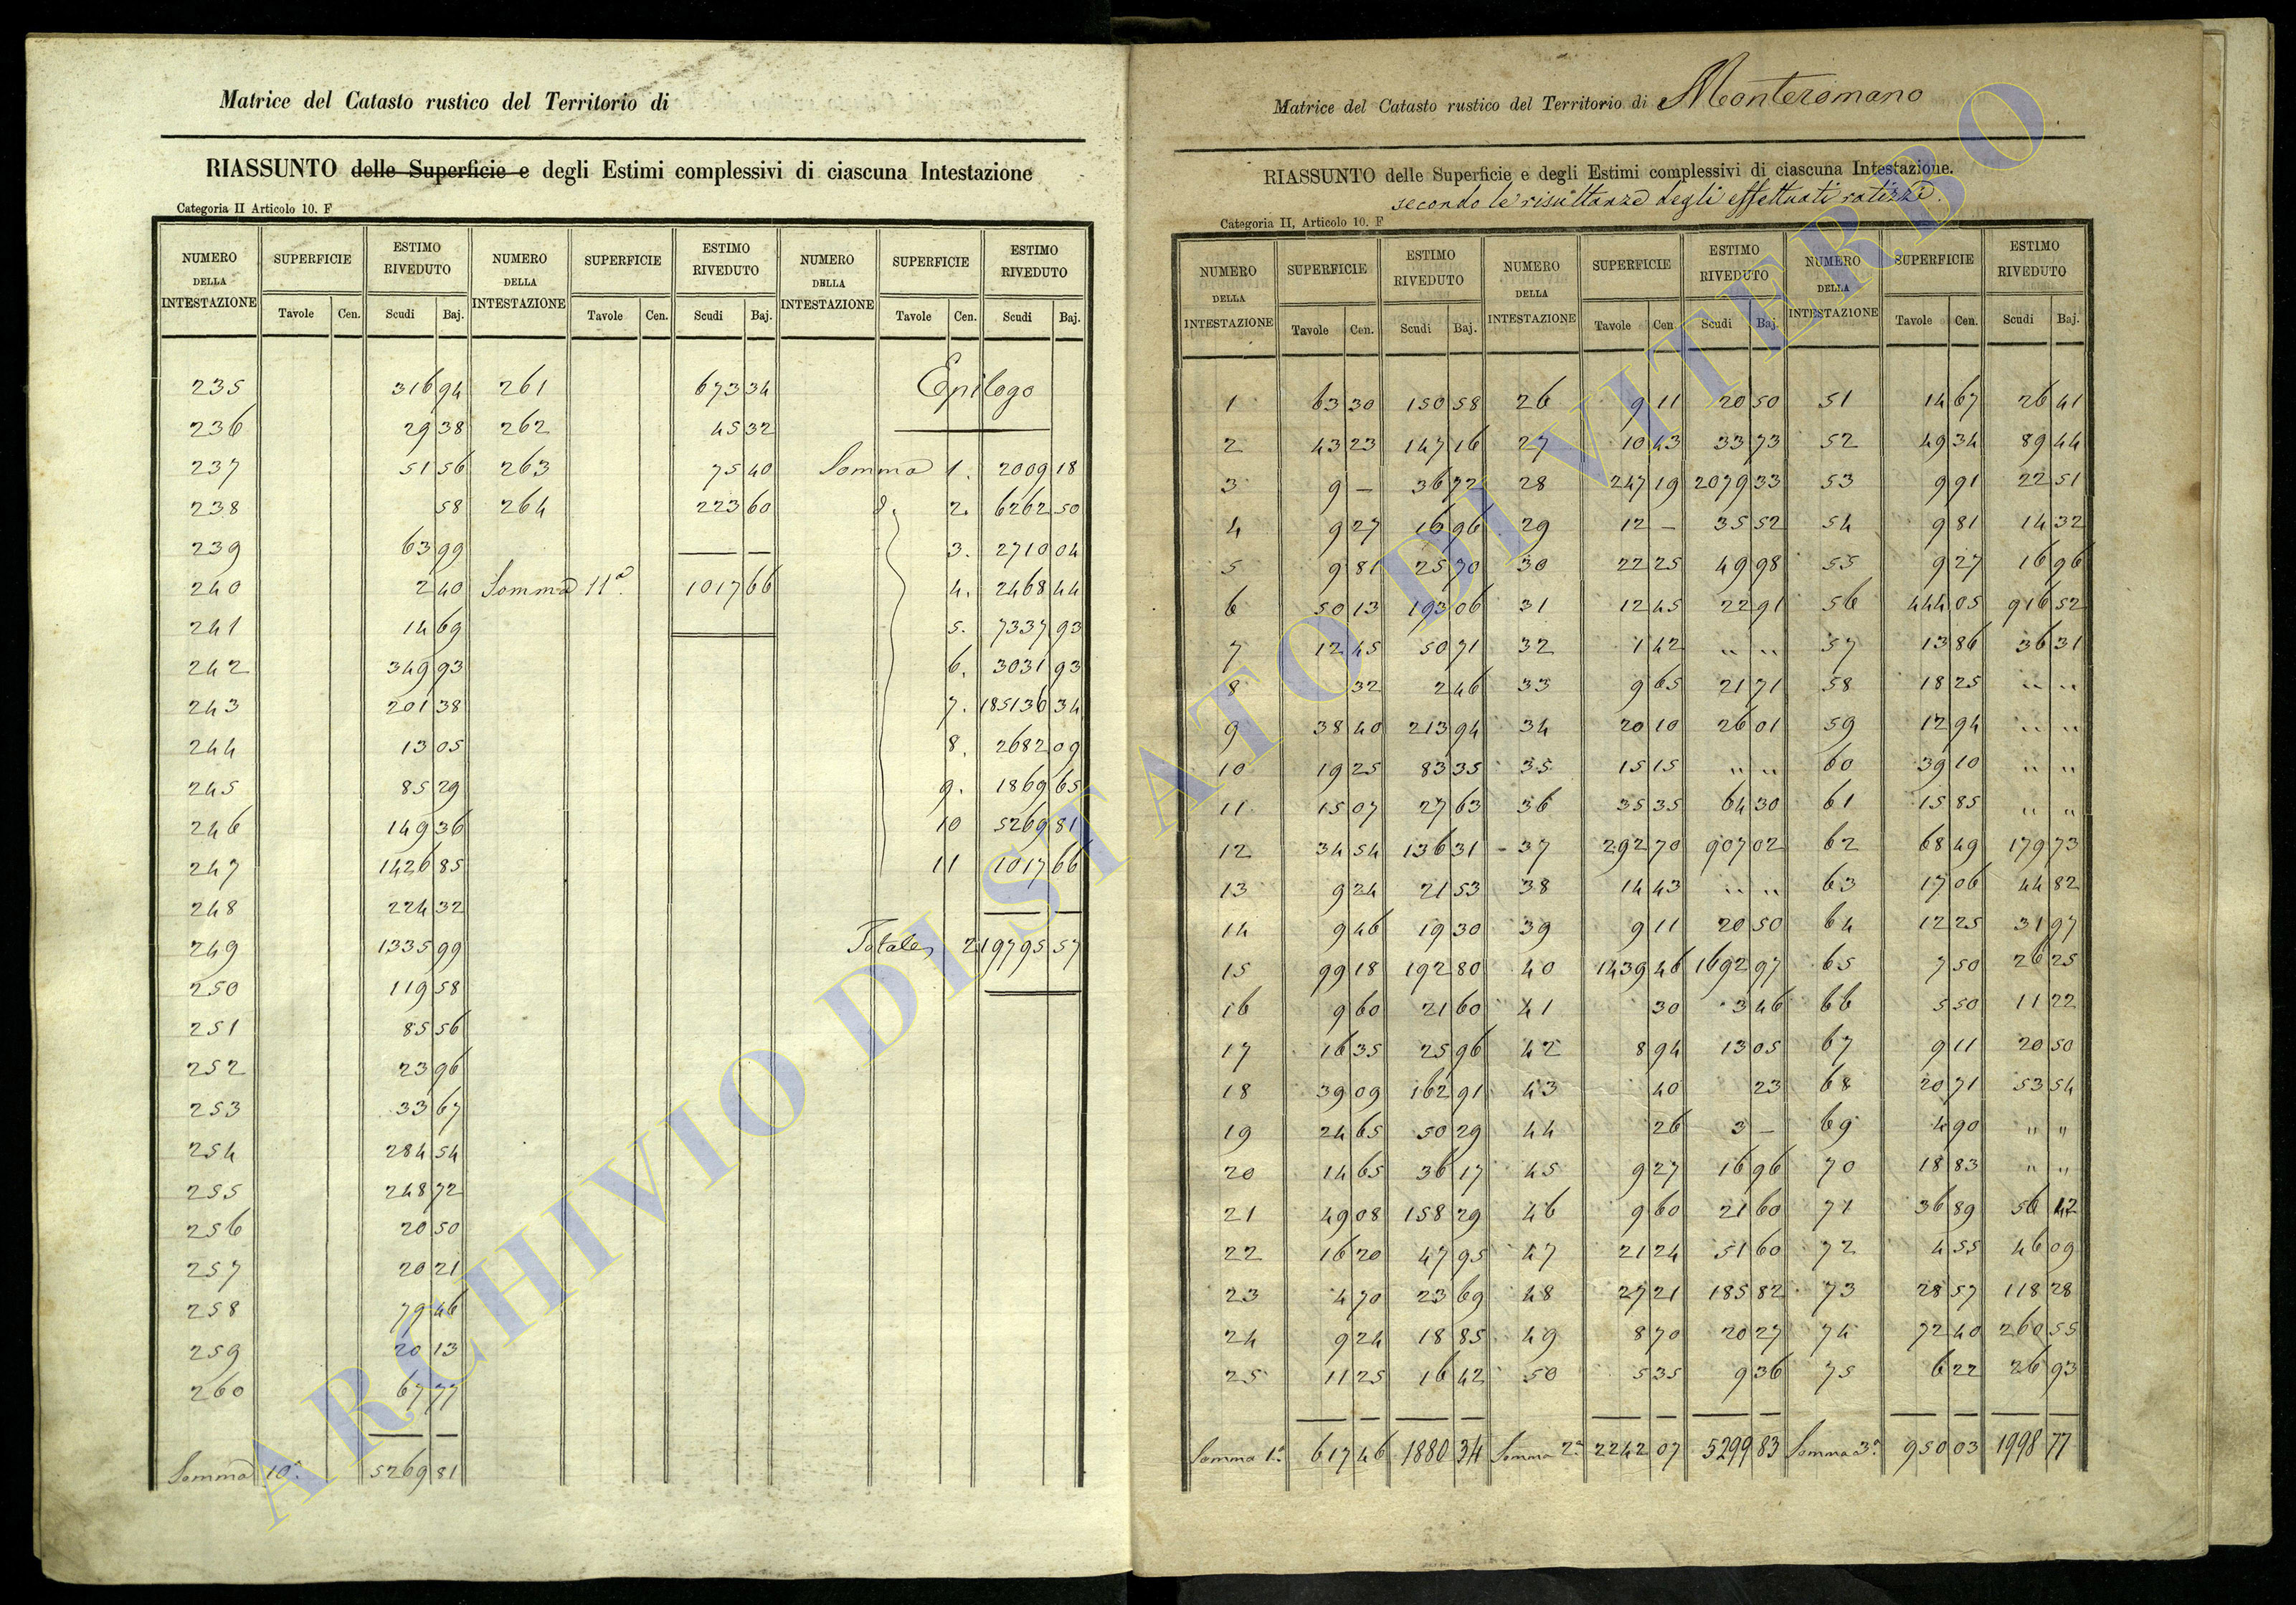 Matrice del Catasto rustico del Territorio di
RIASSUNTO delle Superficie e degli Estimi complessivi di ciascuna Intestazione
Categoria II Articolo 10. F
NUMERO DELLA INTESTAZIONE SUPERFICIE ESTIMO RIVEDUTO NUMERO DELLA INTESTAZIONE SUPERFICIE ESTIMO RIVEDUTO NUMERO DELLA INTESTAZIONE SUPERFICIE ESTIMO RIVEDUTO
Tavole Cen. Scudi Baj. Tavole Cen. Scudi Baj. Tavole Cen. Scudi Baj.
235 316 94 261 673 34 Epilogo
236 29 38 262 45 32
237 51 56 263 75 40 Somma 1. 2009 18
238 58 264 223 60 2. 6262 50
239 63 99 3. 2710 04
240 2 40 Somma 11ª 1017 66 4. 2468 44
241 14 69 5. 7337 93
242 349 93 6. 3031 93
243 201 38 7. 185136 34
244 13 05 8. 2682 09
245 85 29 9. 1869 65
246 149 36 10 5269 81
247 1426 85 11 1017 66
248 224 32
249 1335 99 Totale 219795 57
250 119 58
251 85 56
252 23 96
253 33 67
254 284 54
255 248 72
256 20 50
257 20 21
258 79 46
259 20 13
260 67 77
Somma 10ª 5269 81
Matrice del Catasto rustico del Territorio di Monteromano
RIASSUNTO delle Superficie e degli Estimi complessivi di ciascuna Intestazione.
secondo le risultanze degli effettuati ratizzi.
Categoria II, Articolo 10. F
NUMERO DELLA INTESTAZIONE SUPERFICIE ESTIMO RIVEDUTO NUMERO DELLA INTESTAZIONE SUPERFICIE ESTIMO RIVEDUTO NUMERO DELLA INTESTAZIONE SUPERFICIE ESTIMO RIVEDUTO
Tavole Cen. Scudi Baj. Tavole Cen Scudi Baj. Tavole Cen. Scudi Baj.
1 63 30 150 58 26 9 11 20 50 51 14 67 26 41
2 43 23 147 16 27 10 43 33 73 52 49 34 89 44
3 9 — 36 72 28 247 19 2079 33 53 9 91 22 51
4 9 27 16 96 29 12 — 35 52 54 9 81 14 32
5 9 81 25 70 30 22 25 49 98 55 9 27 16 96
6 50 13 193 06 31 12 45 22 91 56 444 05 916 52
7 12 45 50 71 32 1 42 " " 57 13 86 36 31
8 32 2 46 33 9 65 21 71 58 18 25 " "
9 38 40 213 94 34 20 10 26 01 59 12 94 " "
10 19 25 83 35 35 15 15 " " 60 39 10 " "
11 15 07 27 63 36 35 35 64 30 61 15 85 " "
12 34 54 136 31 37 292 70 907 02 62 68 49 179 73
13 9 24 21 53 38 14 43 " " 63 17 06 44 82
14 9 46 19 30 39 9 11 20 50 64 12 25 31 97
15 99 18 192 80 40 1439 46 1692 97 65 7 50 26 25
16 9 60 21 60 41 30 3 46 66 5 50 11 22
17 16 35 25 96 42 8 94 13 05 67 9 11 20 50
18 39 09 162 91 43 40 23 68 20 71 53 54
19 24 65 50 29 44 26 3 — 69 4 90 " "
20 14 65 36 17 45 9 27 16 96 70 18 83 " "
21 49 08 158 29 46 9 60 21 60 71 36 89 56 42
22 16 20 47 95 47 21 24 51 60 72 4 55 46 09
23 4 70 23 69 48 27 21 185 82 73 28 57 118 28
24 9 24 18 85 49 8 70 20 27 74 72 40 260 55
25 11 25 16 42 50 5 35 9 36 75 6 22 26 93
Somma 1ª 617 46 1880 34 Somma 2ª 2242 07 5299 83 Somma 3ª 950 03 1998 77
ARCHIVIO DI STATO DI VITERBO